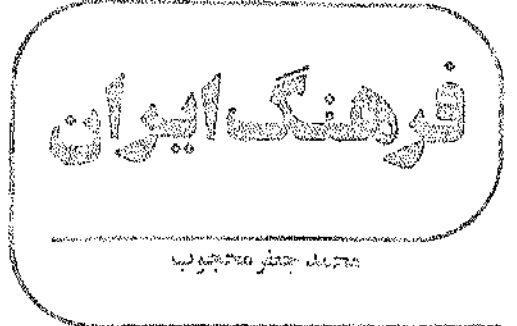 فرهنگ ایران
محمد جعفر محجوب